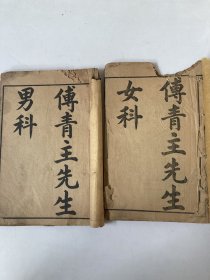 傅青主先生
女科
傅青主先生
男科